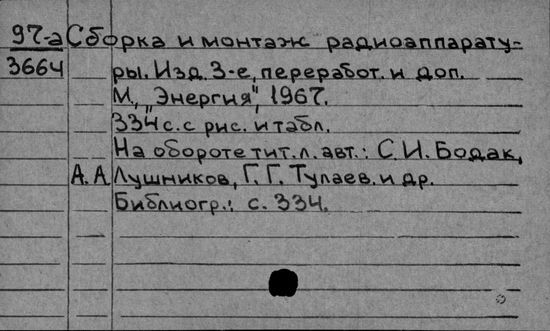 97-а Сборка и монтаж радиоаппарату-
3664 ры. Изд. 3-е, переработ. и доп.
М., "Энергия", 1967.
334 с. с рис. и табл.
На обороте тит. л. авт.: С. И. Бодак,
А. А Лушников, Г. Г. Тулаев. и др.
Библиогр.: с. 334.